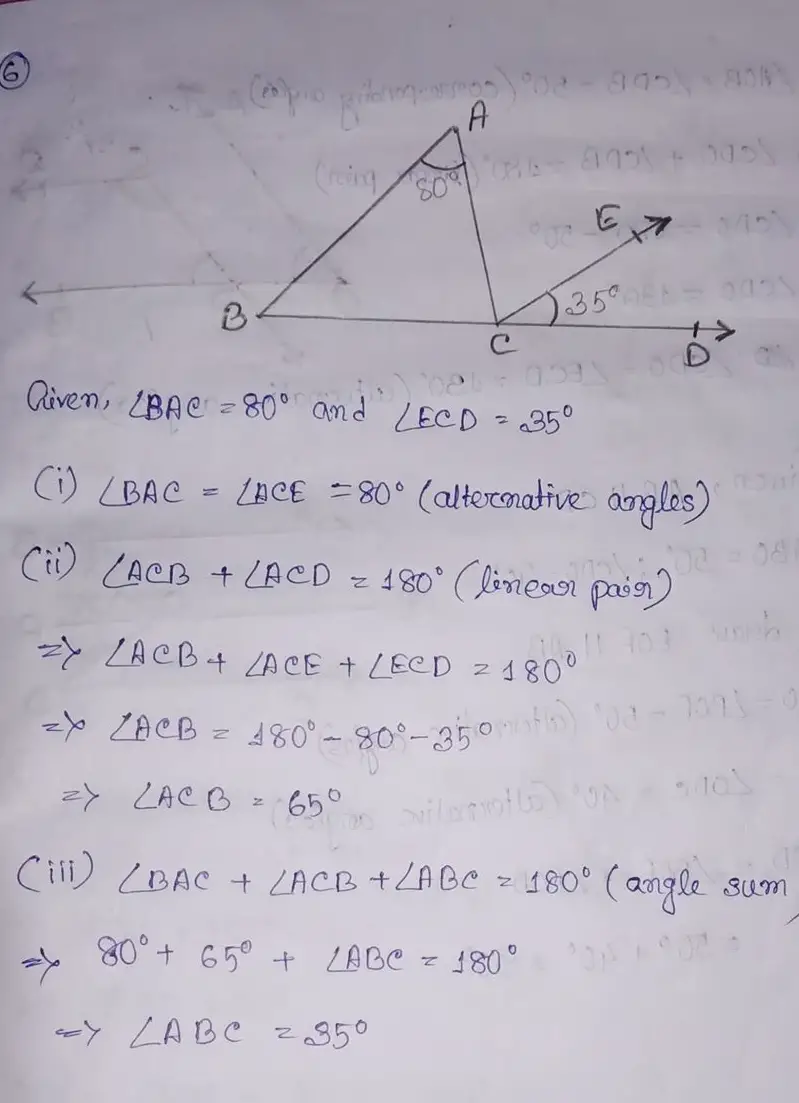 6
A
80°
E
35°
B
C
D
Given, ∠BAC = 80° and ∠ECD = 35°
(i) ∠BAC = ∠ACE = 80° (alternative angles)
(ii) ∠ACB + ∠ACD = 180° (linear pair)
=> ∠ACB + ∠ACE + ∠ECD = 180°
=> ∠ACB = 180° - 80° - 35°
=> ∠ACB = 65°
(iii) ∠BAC + ∠ACB + ∠ABC = 180° (angle sum
=> 80° + 65° + ∠ABC = 180°
=> ∠ABC = 35°